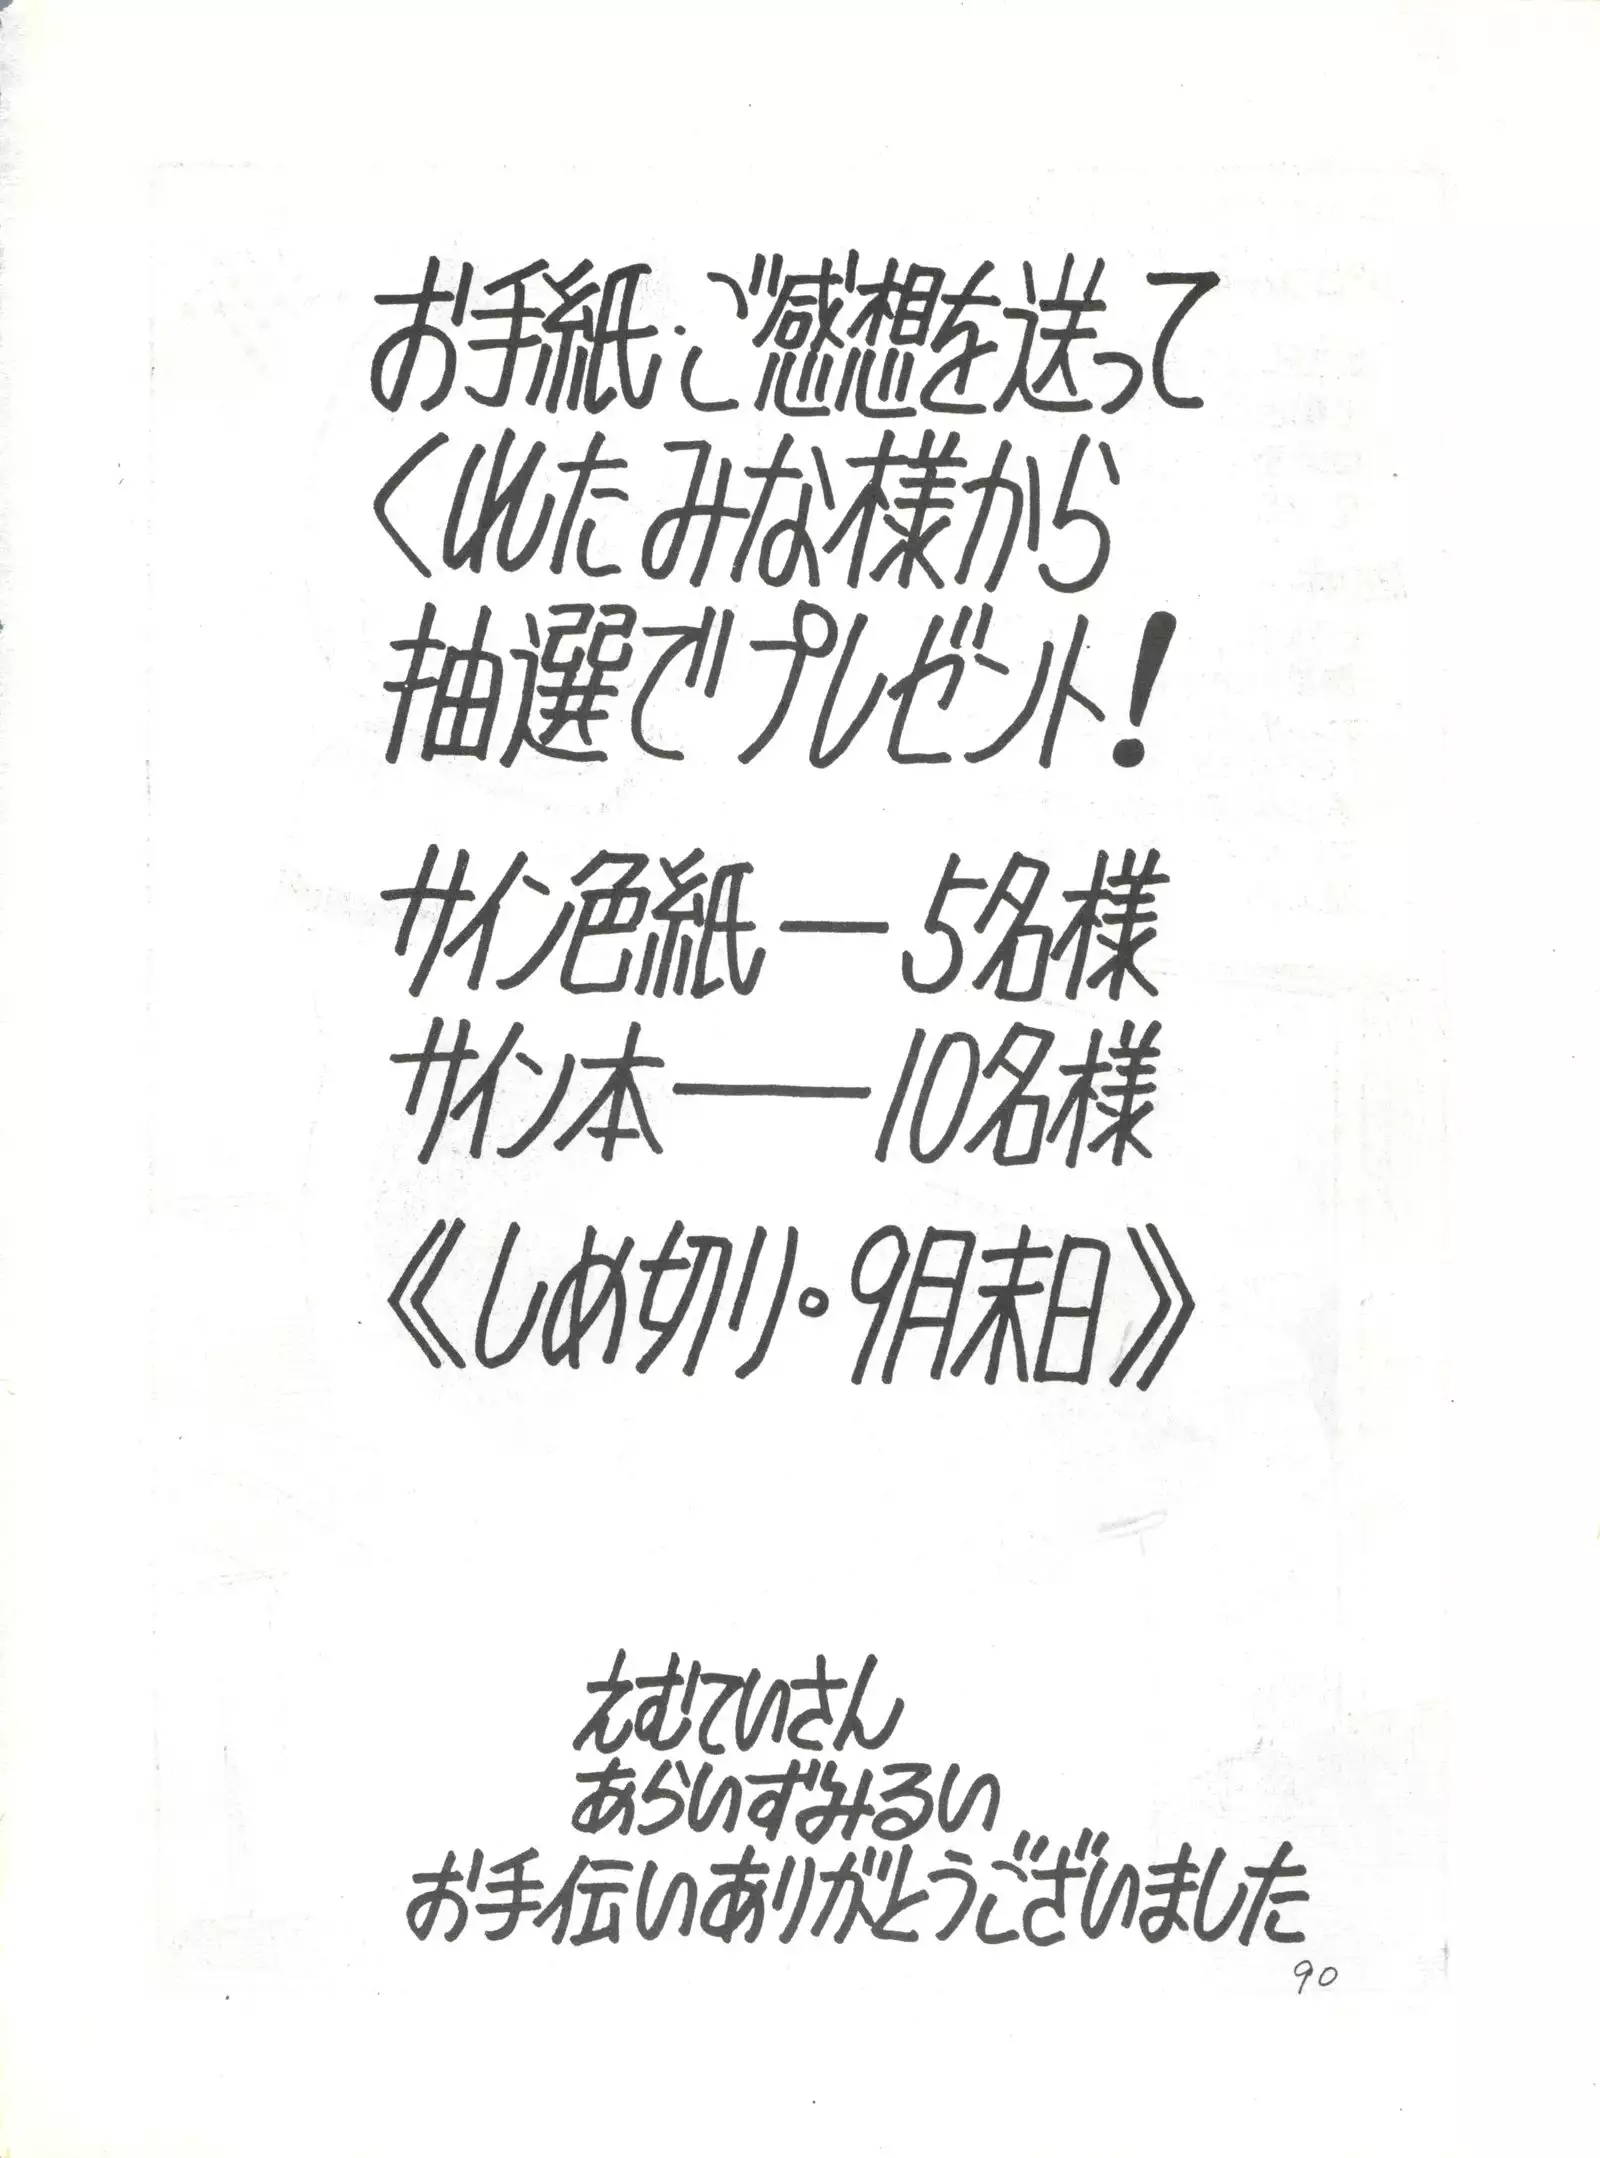 お手紙・ご感想を送って
くれたみな様から
抽選でプレゼント!
サイン色紙―5名様
サイン本――10名様
《しめ切り。9月末日》
えむていさん
あらいずみるい
お手伝いありがとうございました
90